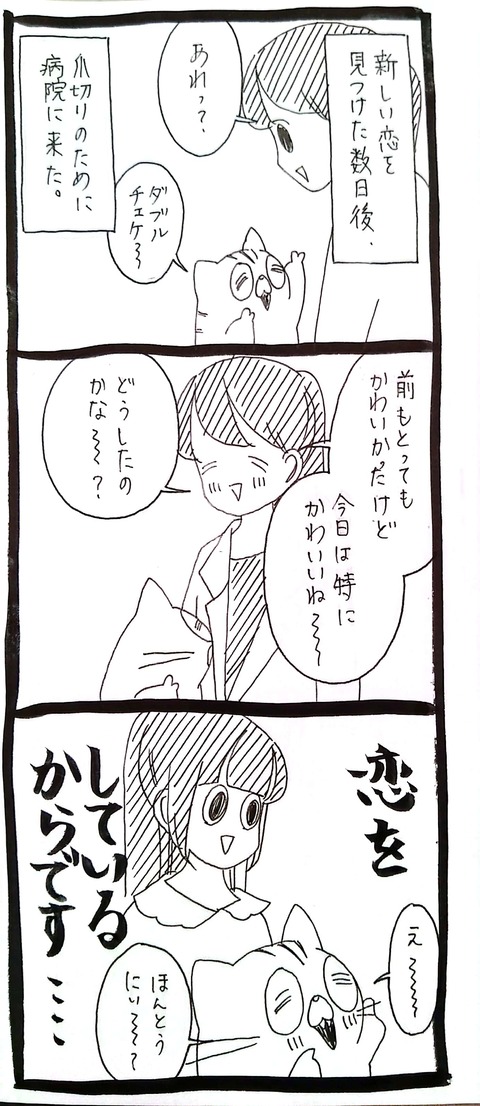 新しい恋を
見つけた数日後、
あれっ?
ダブル
チェケ〜〜
爪切りのために
病院に来た。
前もとっても
かわいかったけど
今日は特に
かわいいね〜〜〜
どうしたの
かな〜〜〜?
恋を
え〜〜〜〜
している
からです…
ほんとう
にい〜〜〜?